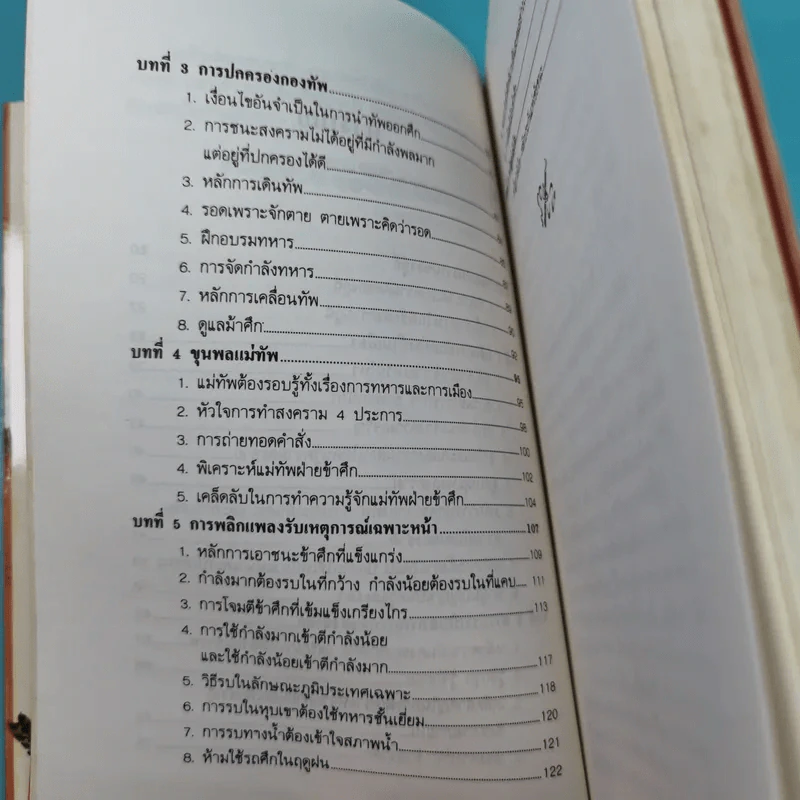 บทที่ 3 การปกครองกองทัพ
1. เงื่อนไขอันจำเป็นในการนำทัพออกศึก
2. การชนะสงครามไม่ได้อยู่ที่มีกำลังพลมาก
แต่อยู่ที่ปกครองได้ดี
3. หลักการเดินทัพ
4. รอดเพราะจักตาย ตายเพราะคิดว่ารอด
5. ฝึกอบรมทหาร
6. การจัดกำลังทหาร
7. หลักการเคลื่อนทัพ
8. ดูแลม้าศึก 92
บทที่ 4 ขุนพลแม่ทัพ
1. แม่ทัพต้องรอบรู้ทั้งเรื่องการทหารและการเมือง 95
2. หัวใจการทำสงคราม 4 ประการ 98
3. การถ่ายทอดคำสั่ง 100
4. พิเคราะห์แม่ทัพฝ่ายข้าศึก 102
5. เคล็ดลับในการทำความรู้จักแม่ทัพฝ่ายข้าศึก 104
บทที่ 5 การพลิกแพลงรับเหตุการณ์เฉพาะหน้า 107
1. หลักการเอาชนะข้าศึกที่แข็งแกร่ง 109
2. กำลังมากต้องรบในที่กว้าง กำลังน้อยต้องรบในที่แคบ 111
3. การโจมตีข้าศึกที่เข้มแข็งเกรียงไกร 113
4. การใช้กำลังมากเข้าตีกำลังน้อย
และใช้กำลังน้อยเข้าตีกำลังมาก 117
5. วิธีรบในลักษณะภูมิประเทศเฉพาะ 118
6. การรบในหุบเขาต้องใช้ทหารชั้นเยี่ยม 120
7. การรบทางน้ำต้องเข้าใจสภาพน้ำ 121
8. ห้ามใช้รถศึกในฤดูฝน 122